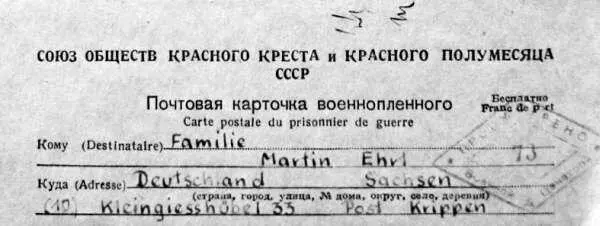 СОЮЗ ОБЩЕСТВ КРАСНОГО КРЕСТА и КРАСНОГО ПОЛУМЕСЯЦА
СССР
Почтовая карточка военнопленного
Бесплатно
Franc de port
Carte postale du prisonnier de guerre
Кому (Destinataire) Familie
Martin Ehrl
Куда (Adresse) Deutschland Sachsen
(страна, город, улица, № дома, округ, село, деревня)
(10) Kleingiesshübel 33 Post Krippen